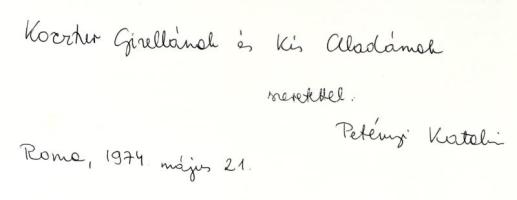 Koczker Gizellának és Kis Aladárnak
szeretettel.
Petényi Katalin
Roma, 1974 május 21.